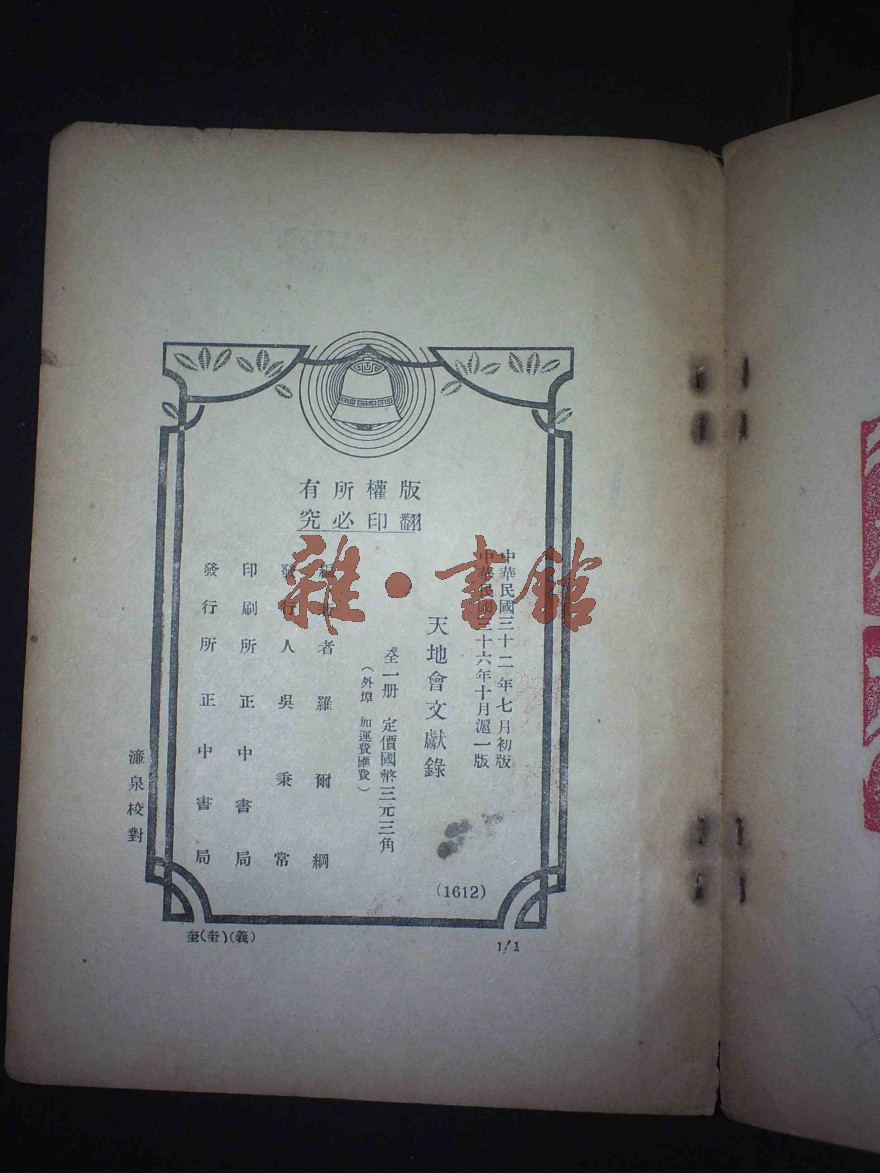 版權所有
翻印必究
中華民國三十二年七月初版
中華民國三十六年十月滬一版
天地會文獻錄
全一册 定價國幣三元三角
(外埠 加運費匯費)
編著者 羅爾綱
發行人 吳秉常
印刷所 正中書局
發行所 正中書局
(1612)
濂泉校對
奎(奎)(義)
1/1
雜·書館